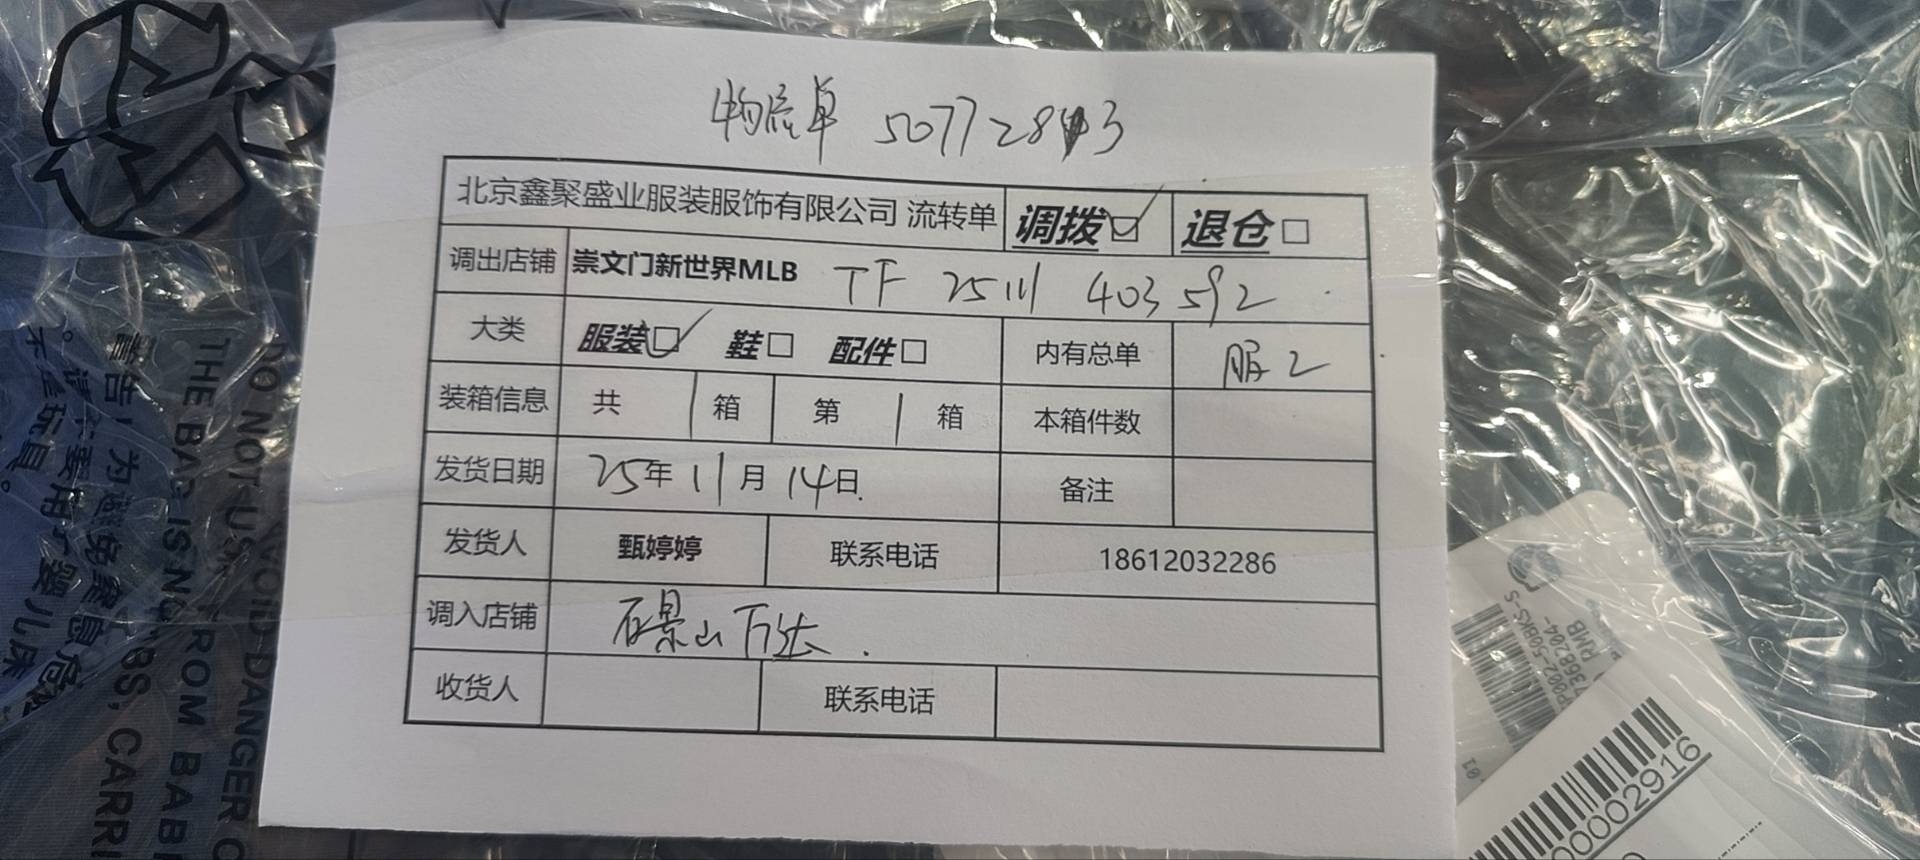 物流单 50772843
北京鑫聚盛业服装服饰有限公司 流转单 调拨☑ 退仓□
调出店铺 崇文门新世界MLB TF 2511 403592
大类 服装☑ 鞋□ 配件□ 内有总单 服2
装箱信息 共 1 箱 第 1 箱 本箱件数
发货日期 25年11月14日. 备注
发货人 甄婷婷 联系电话 18612032286
调入店铺 石景山万达.
收货人 联系电话
警告！为避免窒息危
。请不要用于婴儿床
不是玩具。
DO NOT US
THE BAG IS NO
VOID DANGER O
FROM BABI
BS, CARRI
50BKS-S
7368204-
RMB
00002916